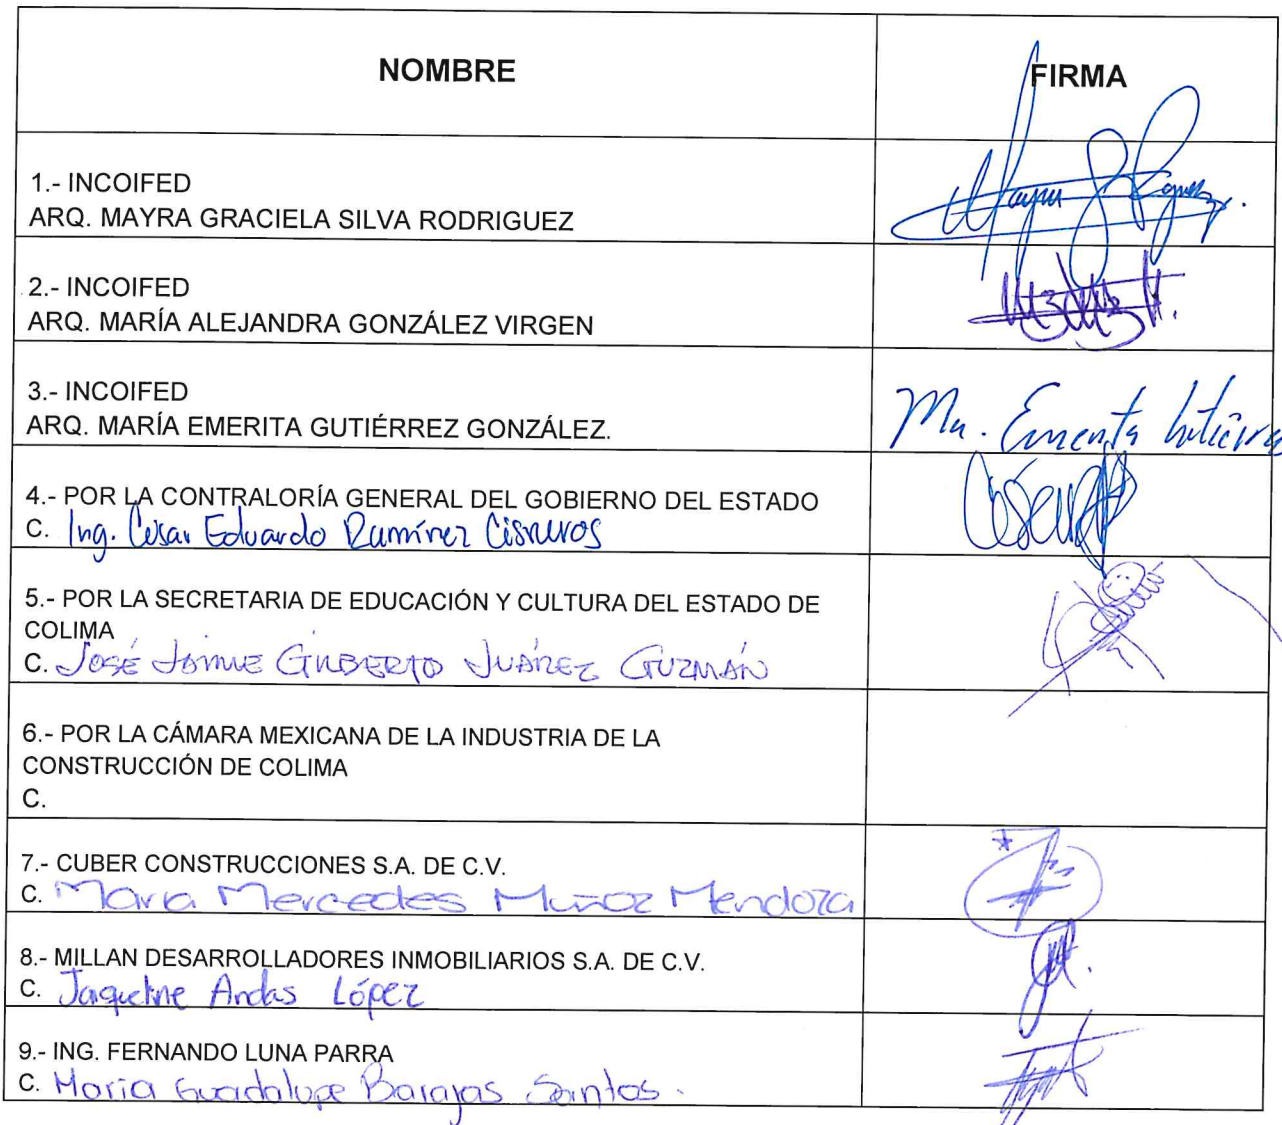 NOMBRE
FIRMA
1.- INCOIFED
ARQ. MAYRA GRACIELA SILVA RODRIGUEZ
2.- INCOIFED
ARQ. MARÍA ALEJANDRA GONZÁLEZ VIRGEN
3.- INCOIFED
ARQ. MARÍA EMERITA GUTIÉRREZ GONZÁLEZ.
Ma. Emerita Gutiérrez
4.- POR LA CONTRALORÍA GENERAL DEL GOBIERNO DEL ESTADO
C. Ing. César Eduardo Ramírez Cisneros
5.- POR LA SECRETARIA DE EDUCACIÓN Y CULTURA DEL ESTADO DE
COLIMA
C. JOSÉ JAIME GILBERTO JUÁREZ GUZMÁN
6.- POR LA CÁMARA MEXICANA DE LA INDUSTRIA DE LA
CONSTRUCCIÓN DE COLIMA
C.
7.- CUBER CONSTRUCCIONES S.A. DE C.V.
C. Maria Mercedes Muñoz Mendoza
8.- MILLAN DESARROLLADORES INMOBILIARIOS S.A. DE C.V.
C. Jaqueline López
9.- ING. FERNANDO LUNA PARRA
C. Maria Guadalupe Barajas Santos.